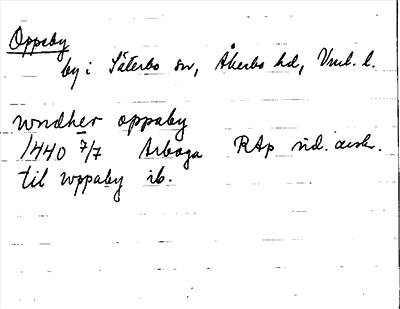 Oppeby
by i Säterbo sn, Åkerbo hd, Vml. l.
wndher oppaby
1440 7/7 Arboga RAp nid. avskr.
til wppaby ib.